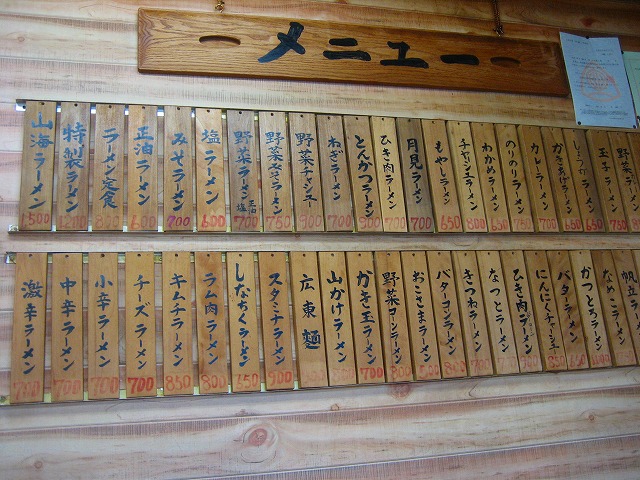 メニュー
山海ラーメン 1500
特製ラーメン 1200
ラーメン定食 800
正油ラーメン 600
みそラーメン 700
塩ラーメン 600
野菜ラーメン 正油 塩 700
野菜みそラーメン 750
野菜チャシュー 900
ねぎラーメン 700
とんかつラーメン 900
ひき肉ラーメン 700
月見ラーメン 700
もやしラーメン 650
チャシュウラーメン 800
わかめラーメン 650
のりのりラーメン
カレーラーメン 700
かきあげラーメン 650
しょうがラーメン 650
玉子ラーメン 750
野菜ラーメン
激辛ラーメン 700
中辛ラーメン 700
小辛ラーメン 700
チーズラーメン 700
キムチラーメン 850
ラム肉ラーメン 800
しなちくラーメン 650
スタミナラーメン 900
広東麺
山かけラーメン
かき玉ラーメン 700
野菜コンラーメン 800
おこさまラーメン
バターコンラーメン 800
きつねラーメン
なっとうラーメン
ひき肉
にんにくチャーシュー
バターラーメン 650
かつとろラーメン
なめこラーメン
帆立ラーメン